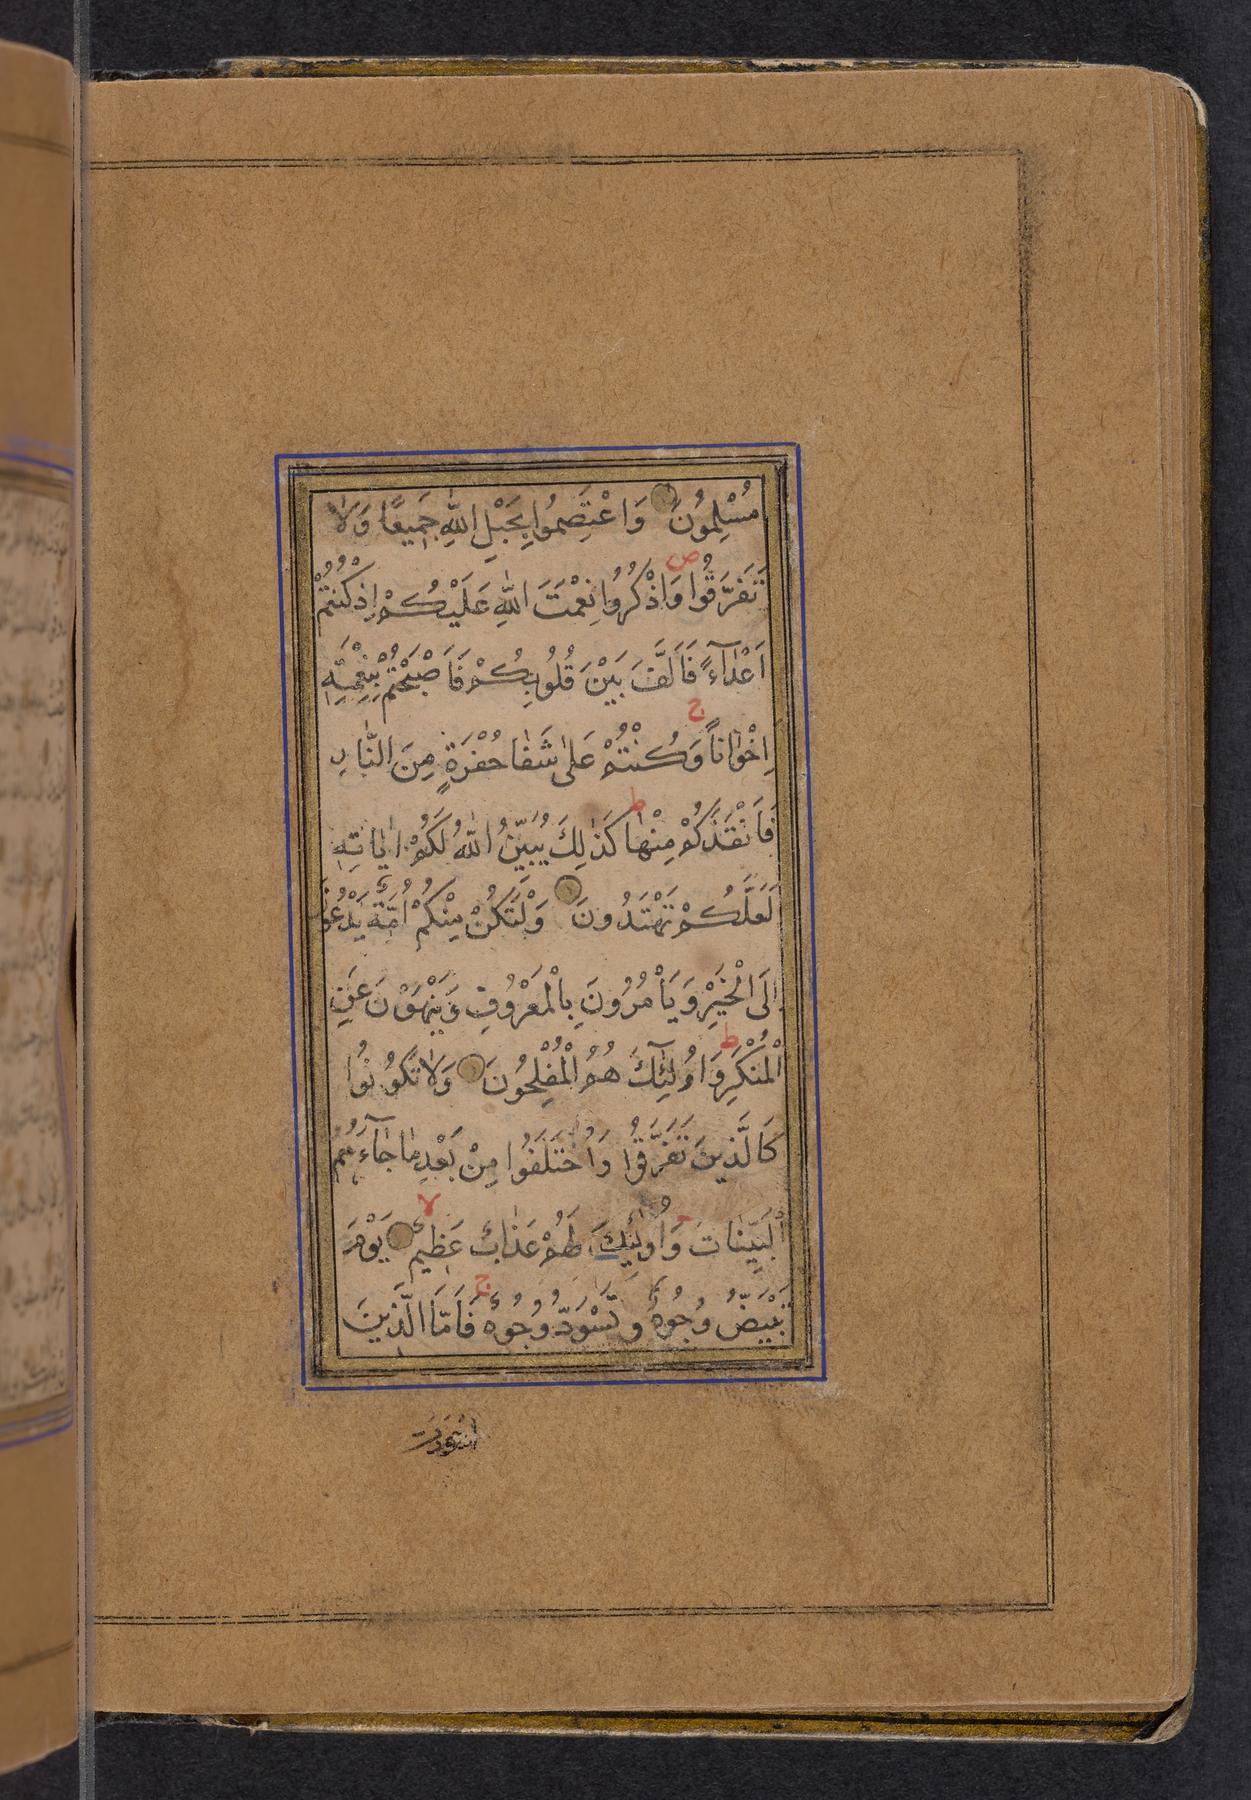 مُسْلِمُونَ وَاعْتَصِمُوا بِحَبْلِ اللّٰهِ جَمِيعًا وَلَا
تَفَرَّقُوا ص وَاذْكُرُوا نِعْمَتَ اللّٰهِ عَلَيْكُمْ اِذْ كُنْتُمْ
اَعْدَآءً فَاَلَّفَ بَيْنَ قُلُوبِكُمْ فَاَصْبَحْتُمْ بِنِعْمَتِهِ
اِخْوَانًا ج وَكُنْتُمْ عَلٰى شَفَا حُفْرَةٍ مِنَ النَّارِ
فَاَنْقَذَكُمْ مِنْهَا ط كَذٰلِكَ يُبَيِّنُ اللّٰهُ لَكُمْ اٰيَاتِهِ
لَعَلَّكُمْ تَهْتَدُونَ وَلْتَكُنْ مِنْكُمْ اُمَّةٌ يَدْعُونَ
اِلَى الْخَيْرِ وَيَاْمُرُونَ بِالْمَعْرُوفِ وَيَنْهَوْنَ عَنِ
الْمُنْكَرِ ط وَاُولٰٓئِكَ هُمُ الْمُفْلِحُونَ وَلَا تَكُونُوا
كَالَّذِينَ تَفَرَّقُوا وَاخْتَلَفُوا مِنْ بَعْدِ مَا جَآءَهُمُ
الْبَيِّنَاتُ وَاُولٰٓئِكَ لَهُمْ عَذَابٌ عَظِيمٌ لا يَوْمَ
تَبْيَضُّ وُجُوهٌ وَتَسْوَدُّ وُجُوهٌ ج فَاَمَّا الَّذِينَ
اسْوَدَّتْ